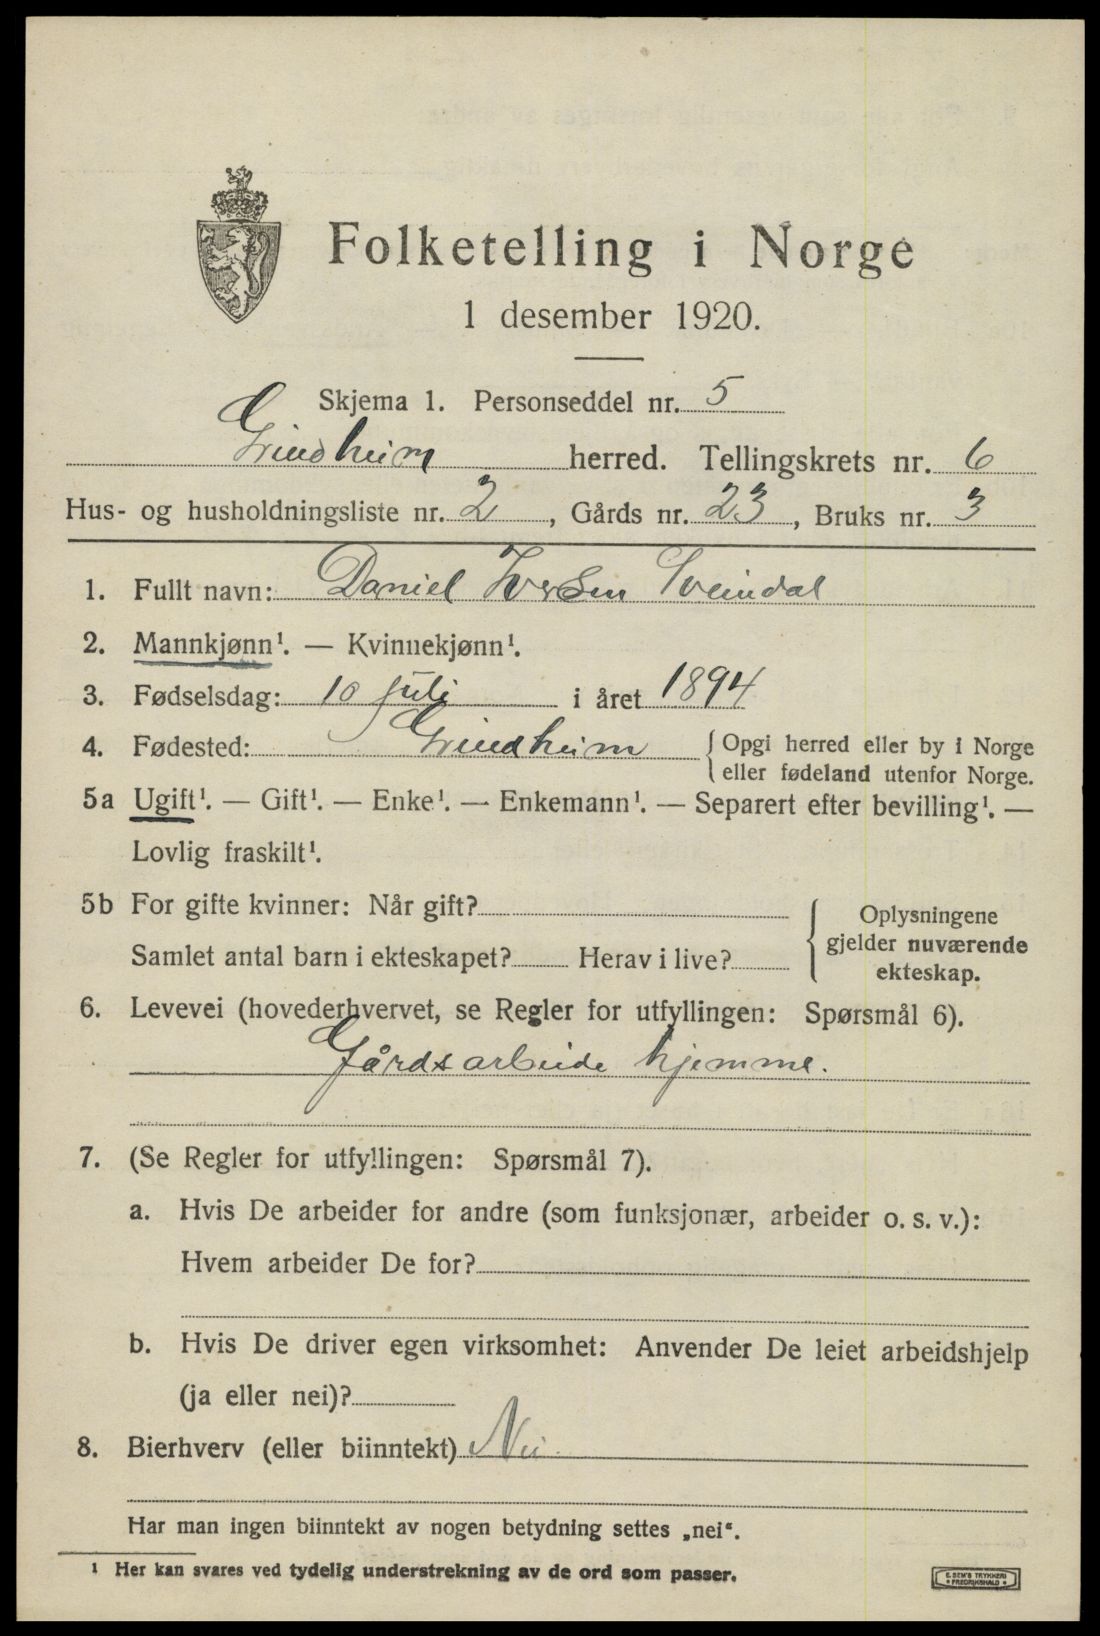 Folketelling i Norge
1 desember 1920.
Skjema 1. Personseddel nr. 5
Grindheim herred. Tellingskrets nr. 6
Hus- og husholdningsliste nr. 2, Gårds nr. 23, Bruks nr. 3
1. Fullt navn: Daniel Iversen Sveindal
2. Mannkjønn¹. — Kvinnekjønn¹.
3. Fødselsdag: 10 juli i året 1894
4. Fødested: Grindheim {Opgi herred eller by i Norge
eller fødeland utenfor Norge.
5a Ugift¹. — Gift¹. — Enke¹. — Enkemann¹. — Separert efter bevilling¹. —
Lovlig fraskilt¹.
5b For gifte kvinner: Når gift?
Samlet antal barn i ekteskapet? Herav i live?
{Oplysningene
gjelder nuværende
ekteskap.
6. Levevei (hovederhvervet, se Regler for utfyllingen: Spørsmål 6).
Gårdsarbeide hjemme.
7. (Se Regler for utfyllingen: Spørsmål 7).
a. Hvis De arbeider for andre (som funksjonær, arbeider o. s. v.):
Hvem arbeider De for?
b. Hvis De driver egen virksomhet: Anvender De leiet arbeidshjelp
(ja eller nei)?
8. Bierhverv (eller biinntekt) Nei
Har man ingen biinntekt av nogen betydning settes „nei“.
¹ Her kan svares ved tydelig understrekning av de ord som passer.
E. SEM'S TRYKKERI
• FREDRIKSHALD •